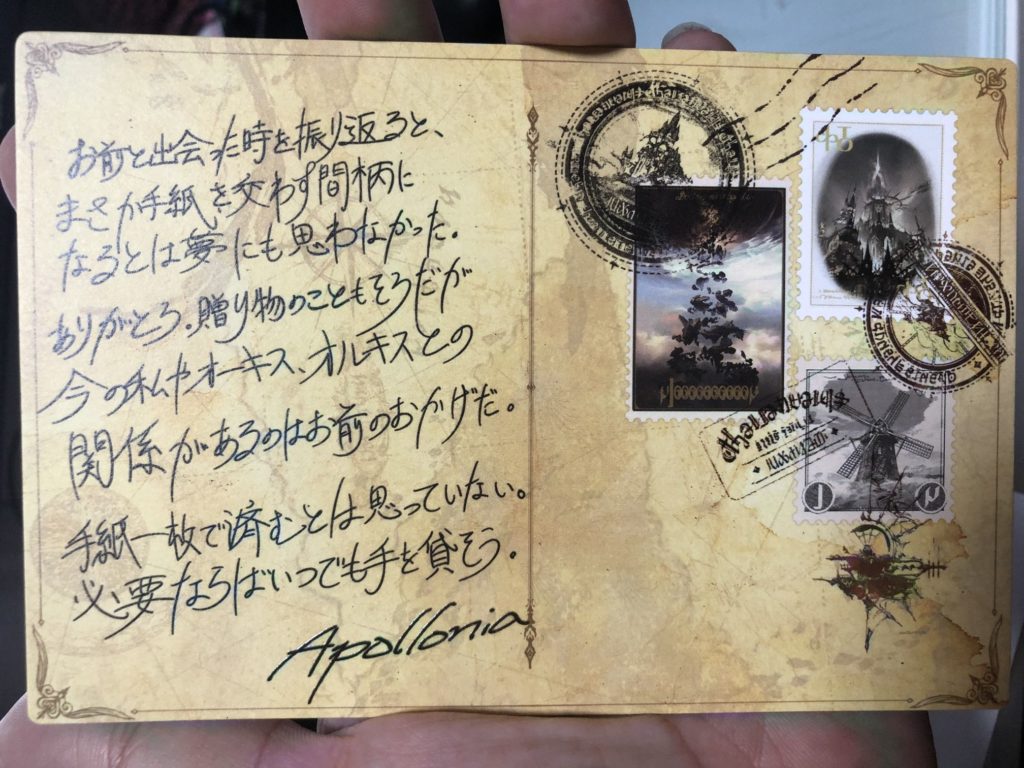 お前と出会った時を振り返ると、
まさか手紙を交わす間柄に
なるとは夢にも思わなかった。
ありがとう。贈り物のこともそうだが
今の私やオーキス、オルキスとの
関係があるのはお前のおかげだ。
手紙一枚で済むとは思っていない。
必要ならばいつでも手を貸そう。
Apollonia